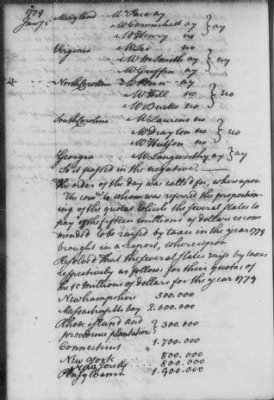 1779
Jan.y 5
Maryland Mr Paca ay } ay
Mr Carmichael ay
Mr Henry no
Virginia Mr Lee no } ay
Mr M Smith ay
Mr Griffin ay
North Carolina Mr Penn ay } no
Mr Hill no
Mr Burke no
South Carolina Mr Laurens no } no
Mr Drayton no
Mr Hutson no
Georgia Mr Langworthy ay } ay
So it passed in the negative
The order of the day was called for, whereupon
The comee to whom was referred the proportion-
ing of the quotas which the several states to
pay of the fifteen millions of dollars recom
mended to be raised by taxes in the year 1779
brought in a report, whereupon
Resolved that the several states raise by taxes
respectively as follows for their quotas of
the 15 millions of dollars for the year 1779
New hampshire 500.000
Massachusetts bay 2.000.000
Rhode island and } 300.000
providence plantations
Connecticut 1.700.000
New York 800.000
New Jersey 800.000
Pensylvania 1.900.000